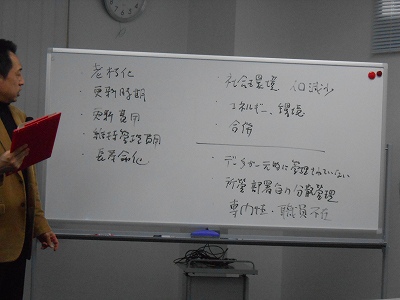 老朽化
・更新時期
・更新費用
・維持管理費用
・長寿命化
・社会環境 人口減少
・エネルギー、環境
・合併
・データが一元的に管理されていない
所管部署毎の分散管理
専門性・職員不在